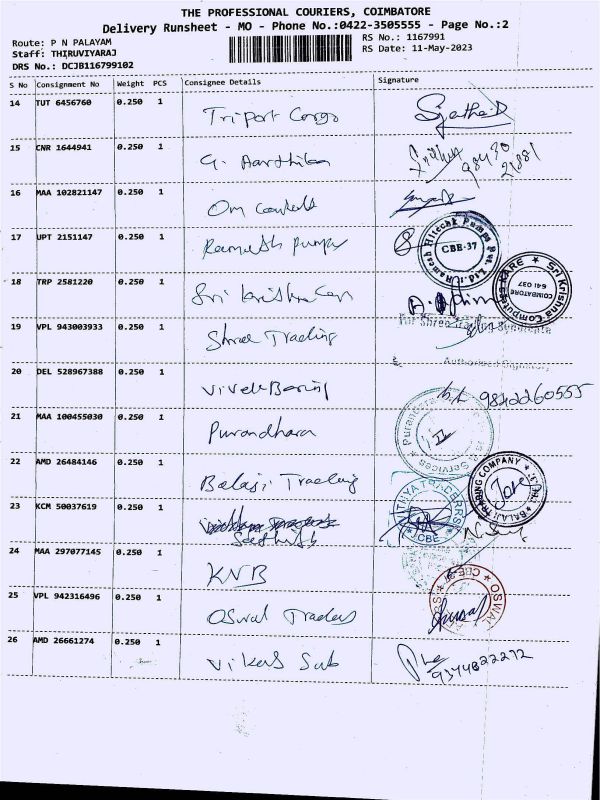 THE PROFESSIONAL COURIERS, COIMBATORE
Delivery Runsheet - MO - Phone No.:0422-3505555 - Page No.:2
Route: P N PALAYAM
Staff: THIRUVIYARAJ
DRS No.: DCJB116799102
RS No.: 1167991
RS Date: 11-May-2023
S No Consignment No Weight PCS Consignee Details Signature
14 TUT 6456760 0.250 1 Triport Cargo
15 CNR 1644941 0.250 1 G. Aarthika 98430 21881
16 MAA 102821147 0.250 1 Om
17 UPT 2151147 0.250 1 Ramesh pumps
Ramesh Hitechk Pumps Pvt. Ltd. CBE-37
18 TRP 2581220 0.250 1 Sri krishna Com
Sri Krishna Computers KARE COIMBATORE 641 037
For Shree Trading Syndicate
19 VPL 943003933 0.250 1 Shree Trading
Authorised Signatory
20 DEL 528967388 0.250 1 Vivek Boring 9842260555
21 MAA 100455030 0.250 1 Purandhara
22 AMD 26484146 0.250 1 Balaji Trading
BALAJI TRADING COMPANY
23 KCM 50037619 0.250 1
VIDHYA TRADERRS CBE
24 MAA 297077145 0.250 1 KNB
25 VPL 942316496 0.250 1 Oswal Traders
OSWAL CBE
26 AMD 26661274 0.250 1 Vikas Sub
9374822272